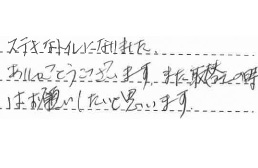 ステキなトイレになりました。
ありがとうございます。また取替えの時
はお願いしたいと思います。